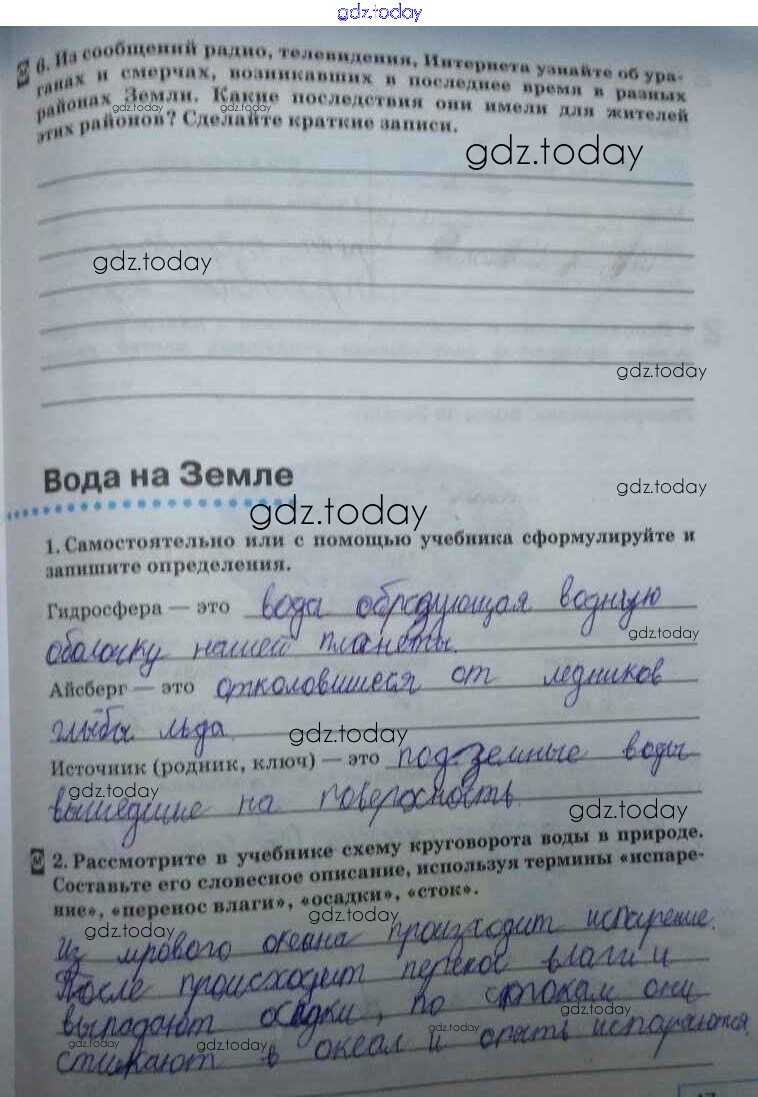 gdz.today
6. Из сообщений радио, телевидения, Интернета узнайте об ура-
ганах и смерчах, возникавших в последнее время в разных
районах Земли. Какие последствия они имели для жителей
этих районов? Сделайте краткие записи.
gdz.today
gdz.today
gdz.today
gdz.today
gdz.today
Вода на Земле
gdz.today
gdz.today
1. Самостоятельно или с помощью учебника сформулируйте и
запишите определения.
Гидросфера — это вода образующая водную
gdz.today
оболочку нашей планеты.
Айсберг — это отколовшиеся от ледников
глыбы льда.
gdz.today
Источник (родник, ключ) — это подземные воды
gdz.today
вышедшие на поверхность.
gdz.today
2. Рассмотрите в учебнике схему круговорота воды в природе.
Составьте его словесное описание, используя термины «испаре-
ние», «перенос влаги», «осадки», «сток».
gdz.today
gdz.today
Из мрового океана происходит испарение.
После происходит перенос влаги и
выпадают осадки, по стокам они
gdz.today
gdz.today
стикают в океан и опять испараются.
gdz.today
gdz.today
47